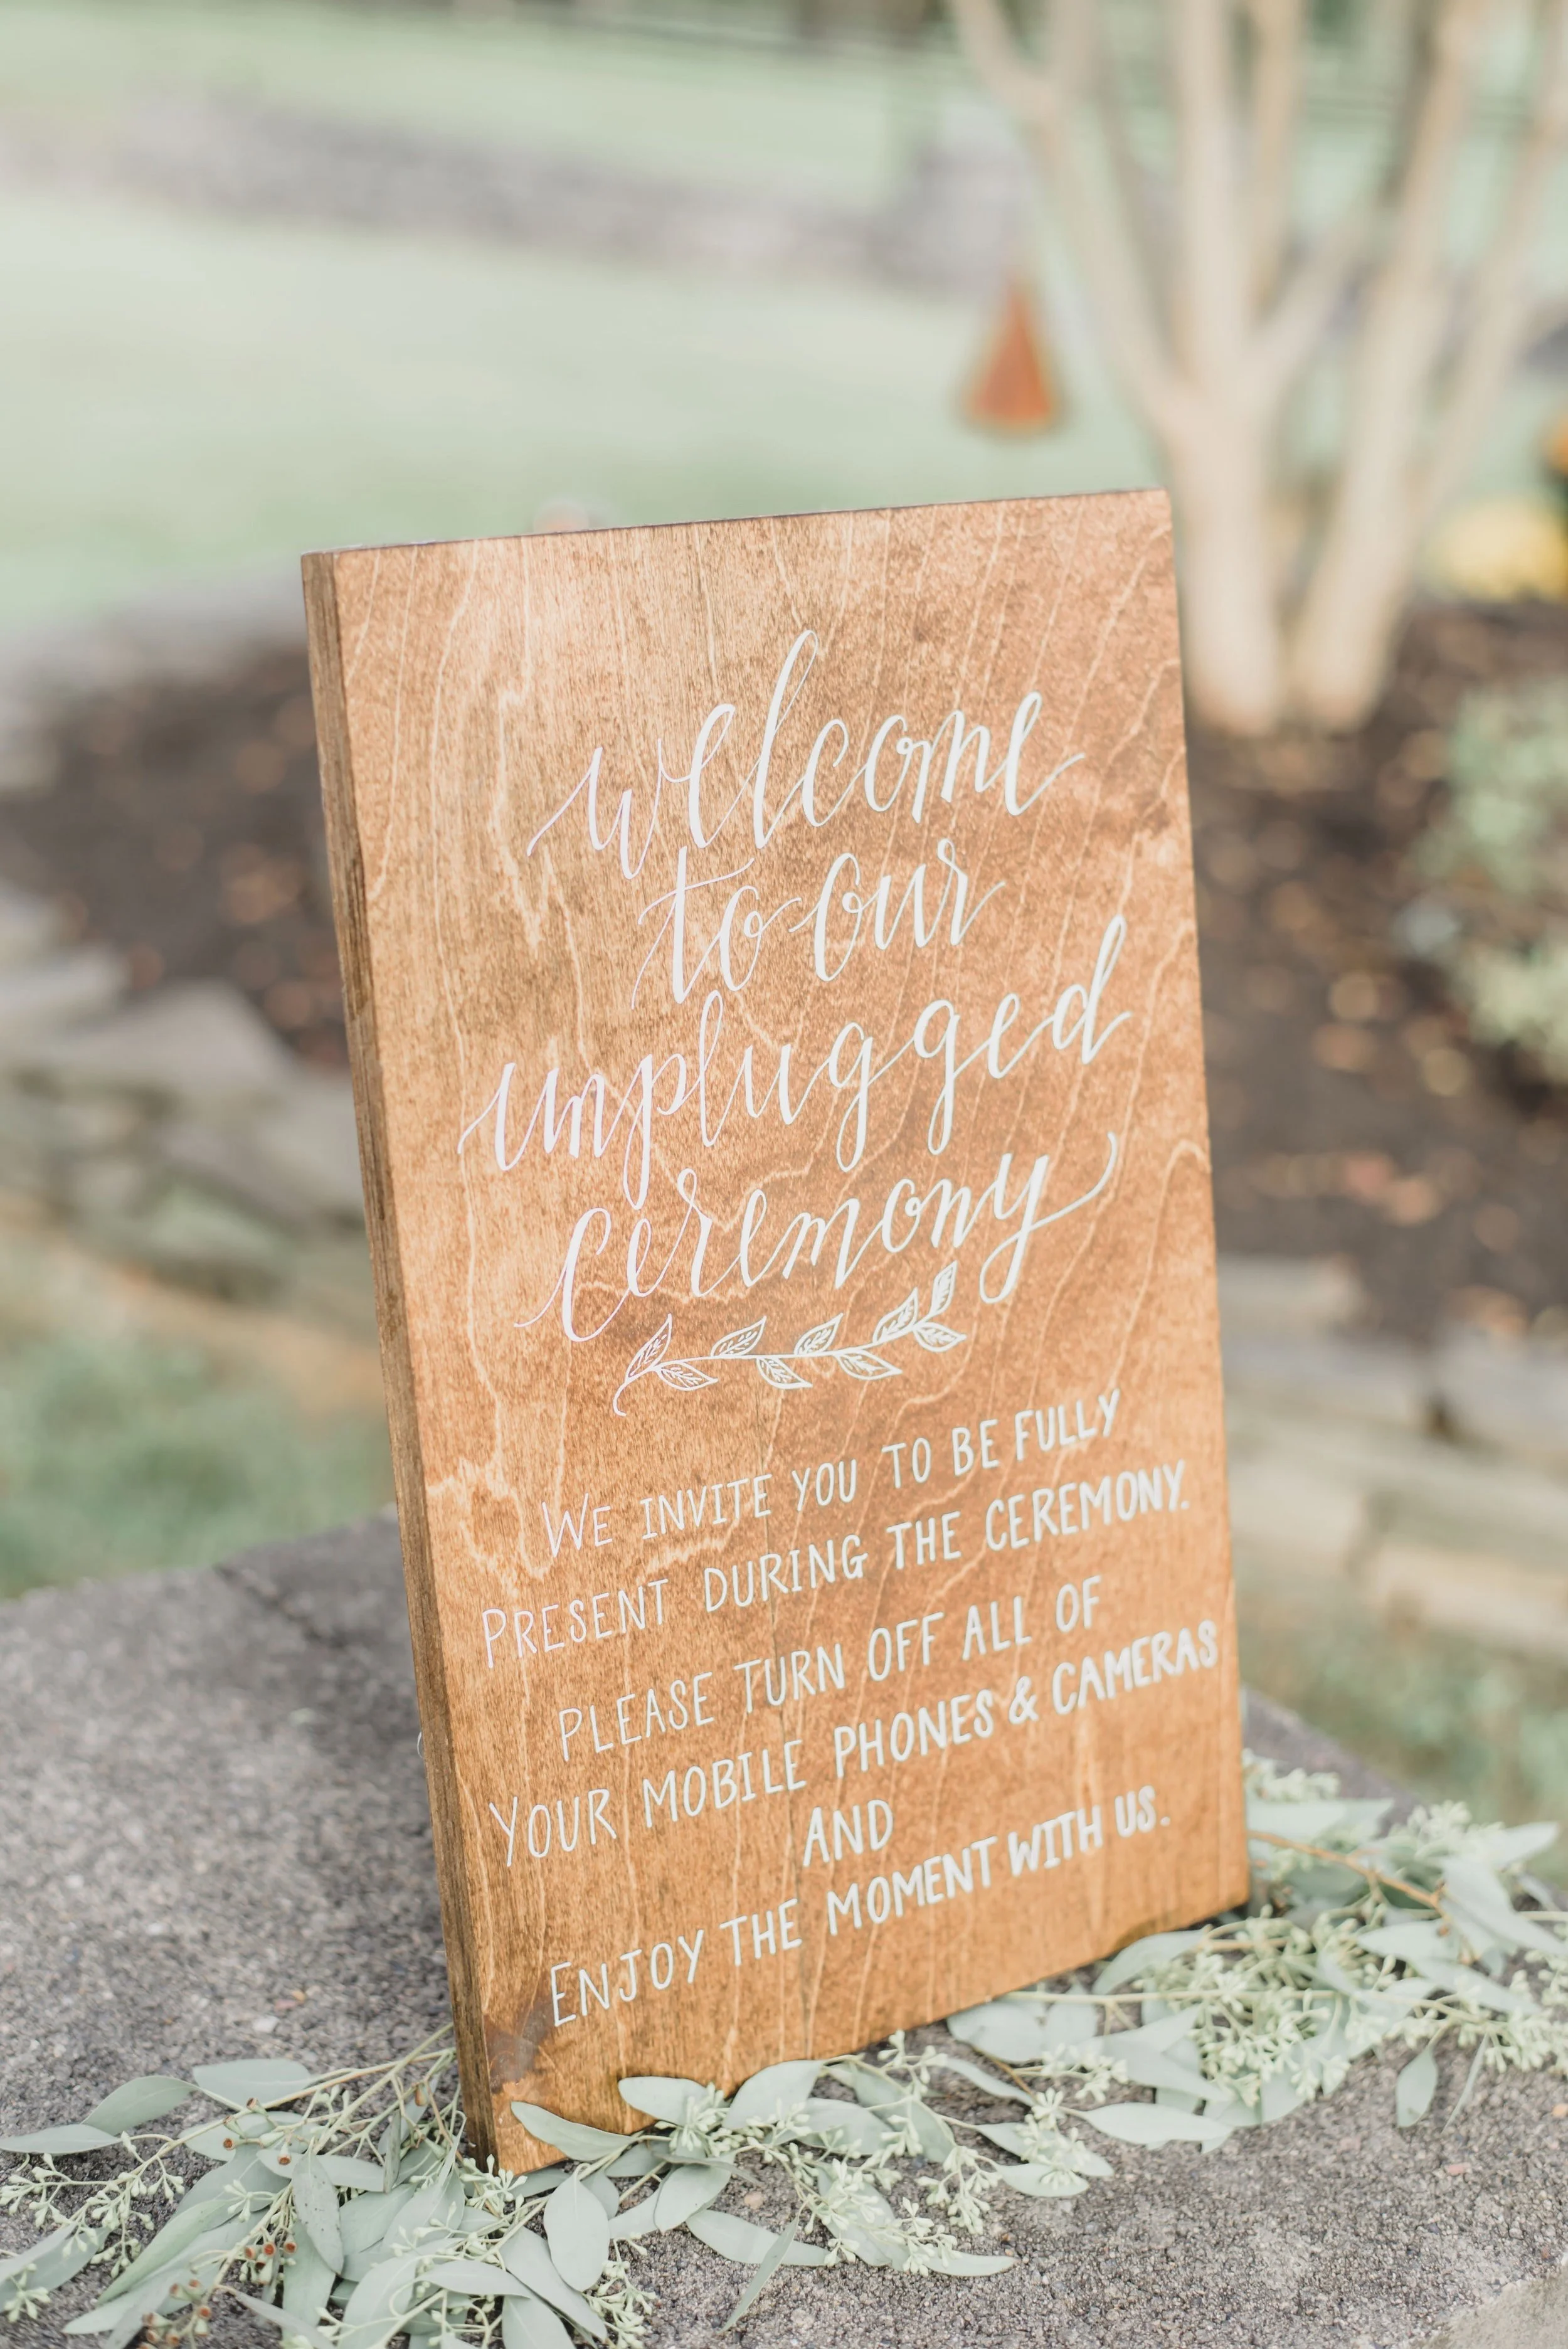 welcome
to our
unplugged
ceremony
WE INVITE YOU TO BE FULLY
PRESENT DURING THE CEREMONY.
PLEASE TURN OFF ALL OF
YOUR MOBILE PHONES & CAMERAS
AND
ENJOY THE MOMENT WITH US.